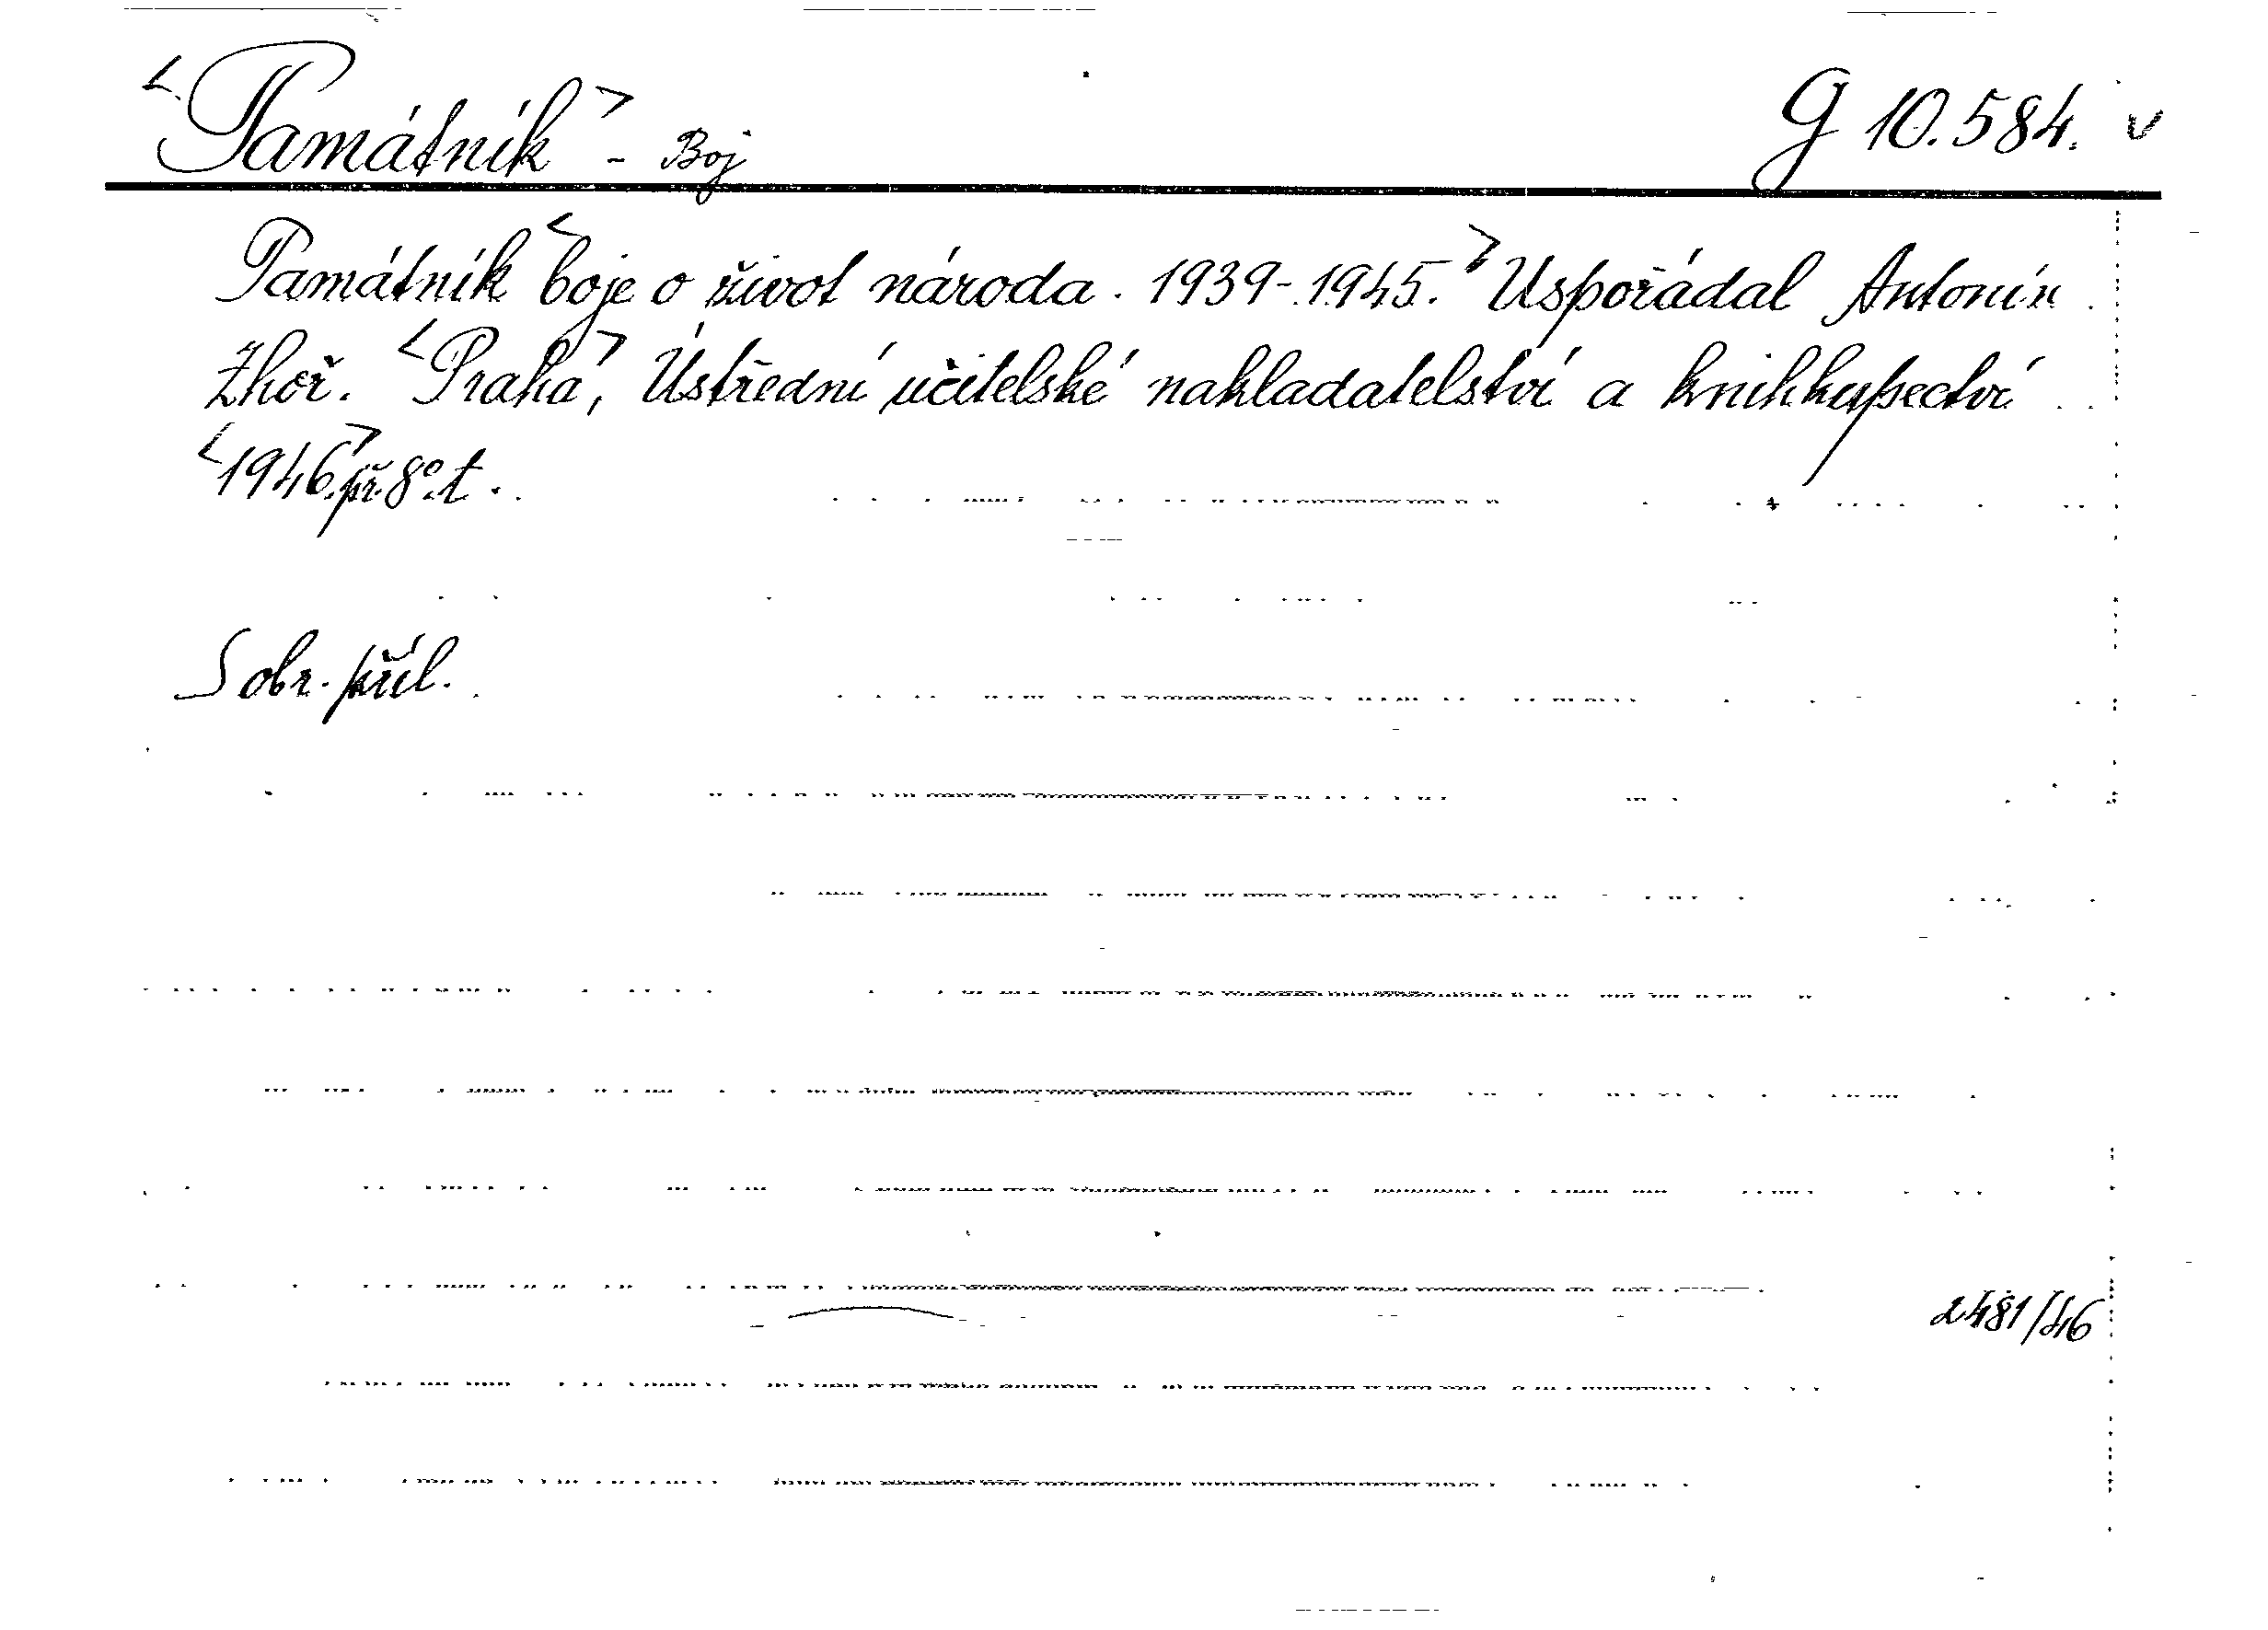 <Památník> - Boj G 10.584. v
Památník <boje o život národa. 1939-1945.> Uspořádal Antonín
Zhoř. <Praha>, Ústřední učitelské nakladatelství a knihkupectví
<1946.> př. 8°. t.
S obr. příl.
2481/46